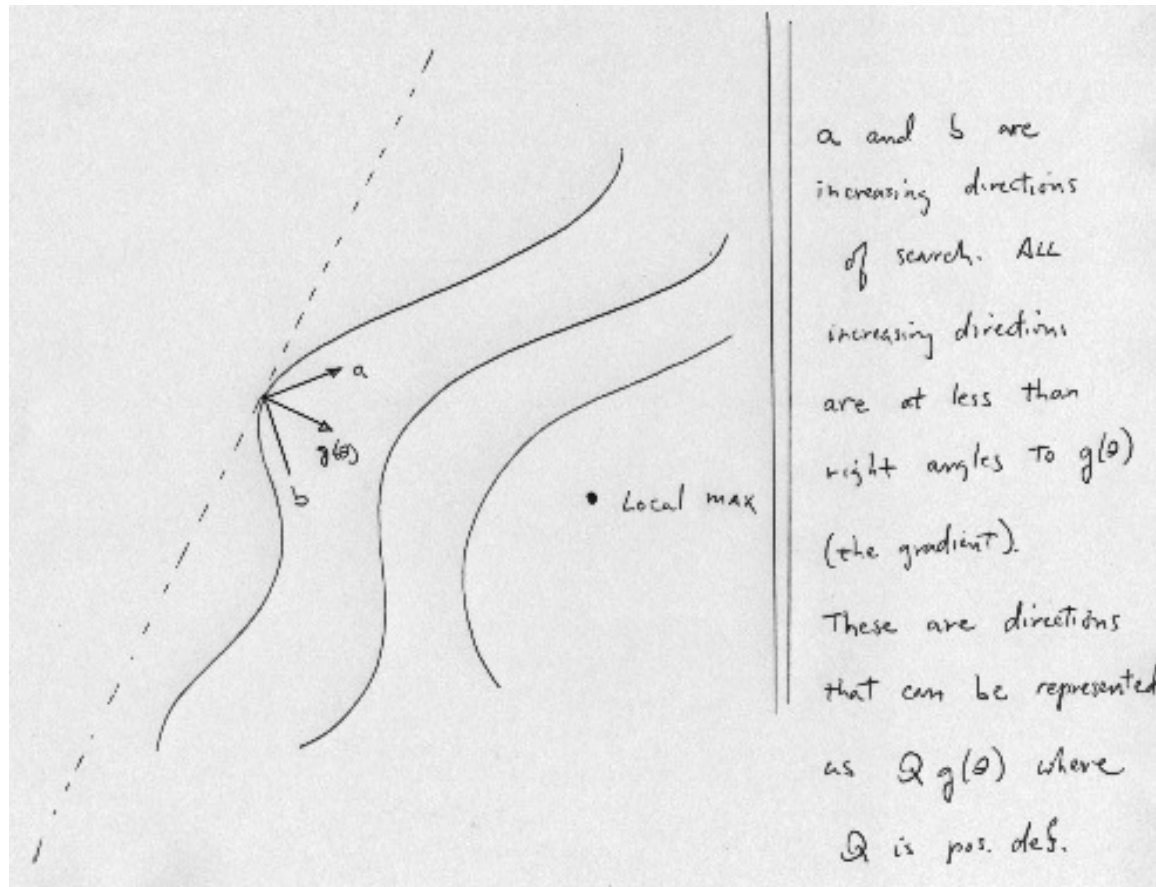 a
g(θ)
b
Local max
a and b are
increasing directions
of search. ALL
increasing directions
are at less than
right angles to g(θ)
(the gradient).
These are directions
that can be represented
as Q g(θ) where
Q is pos. def.